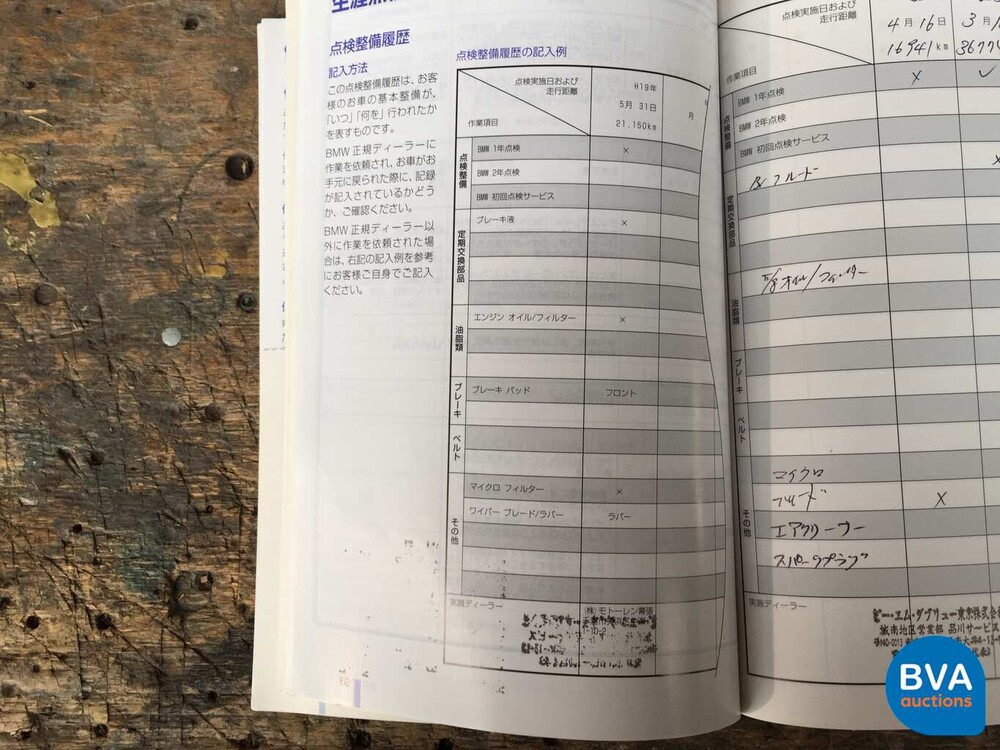 点検整備履歴
記入方法
この点検整備履歴は、お客
様のお車の基本整備が、
「いつ」「何を」行われたか
を表すものです。
BMW正規ディーラーに
作業を依頼され、お車がお
手元に戻られた際に、記録
が記入されているかどう
か、ご確認ください。
BMW正規ディーラー以
外に作業を依頼された場
合は、右記の記入例を参考
にお客様ご自身でご記入
ください。
点検整備履歴の記入例
点検実施日および
走行距離
作業項目
H19年
5月 31日
21,150km
月
点検整備
BMW 1年点検 ×
BMW 2年点検
BMW 初回点検サービス
定期交換部品
ブレーキ液 ×
油脂類
エンジン オイル/フィルター ×
ブレーキ
ブレーキ パッド フロント
ベルト
その他
マイクロ フィルター ×
ワイパー ブレード/ラバー ラバー
実施ディーラー
(株) モトーレン幕張
点検実施日および
走行距離
作業項目
4月16日
16941km
3月
点検整備
BMW 1年点検 × ✓
BMW 2年点検
BMW 初回点検サービス
フルード
定期交換部品
オイル/フィルター
油脂類
ブレーキ
ベルト
その他
マイクロ
フルード ×
エアクリーナー
スパークプラグ
実施ディーラー
ビー・エム・ダブリュー東京株式会
城南地区営業部 品川サービス
BVA
auctions